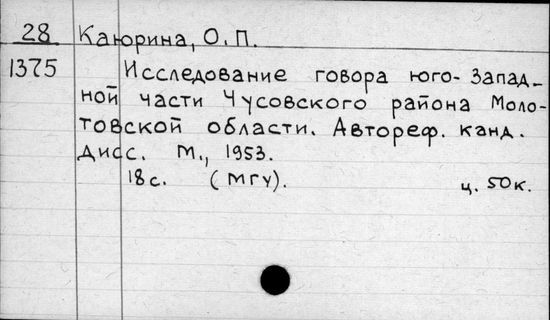 28 Каюрина, О.П.
1375 Исследование говора юго-запад-
ной части Чусовского района Моло-
товской области. Автореф. канд.
дисс. М., 1953.
18с. (МГУ). ц. 50к.